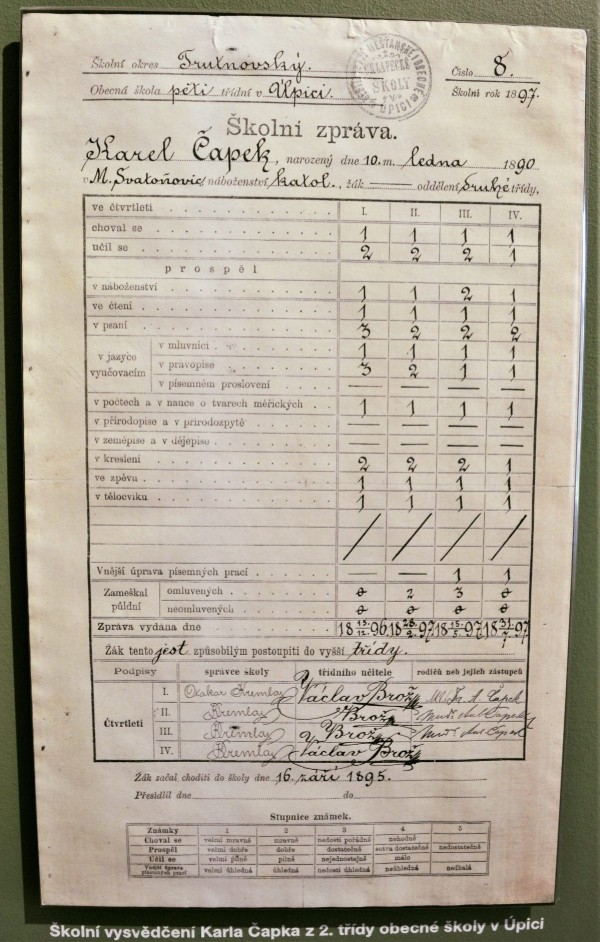 Školní okres Trutnovský.
Číslo 8.
Obecná škola pěti třídní v Úpici.
Školní rok 1897.
ŠKOLY
V ÚPICI
Školní zpráva.
Karel Čapek, narozený dne 10. m. ledna 1890
v M. Svatoňovic, náboženství katol., žák — oddělení druhé třídy.
ve čtvrtletí I. II. III. IV.
choval se 1 1 1 1
učil se 2 2 2 1
prospěl
v náboženství 1 1 2 1
ve čtení 1 1 1 1
v psaní 3 2 2 2
v jazyce vyučovacím
v mluvnici 1 1 1 1
v pravopise 3 2 1 1
v písemném proslovení — — — —
v počtech a v nauce o tvarech měřických 1 1 1 1
v přírodopise a v přírodozpytě — — — —
v zeměpise a v dějepise — — — —
v kreslení 2 2 2 1
ve zpěvu 1 1 1 1
v tělocviku 1 1 1 1
/ / / /
Vnější úprava písemných prací — — 1 1
Zameškal půldní
omluvených 0 2 3 0
neomluvených 0 0 0 0
Zpráva vydána dne 18 13/12 96 18 /2 97 18 15/5 97 18 31/7 97
Žák tento jest způsobilým postoupiti do vyšší třídy.
Podpisy správce školy třídního učitele rodičů neb jejich zástupců
Čtvrtletí
I. Otakar Kremlay Václav Brož A. Čapek
II. Kremlay Brož Čapek
III. Kremlay V Brož Čapek
IV. Kremlay Václav Brož
Žák začal choditi do školy dne 16. září 1895.
Přesídlil dne do
Stupnice známek.
Známky 1 2 3 4 5
Choval se velmi mravně mravně nedosti pořádně nehodně
Prospěl velmi dobře dobře dostatečně sotva dostatečně nedostatečně
Učil se velmi pilně pilně nejednostejně málo
Vnější úprava písemných prací velmi úhledná úhledná nedosti úhledná neúhledná nedbalá
Školní vysvědčení Karla Čapka z 2. třídy obecné školy v Úpici